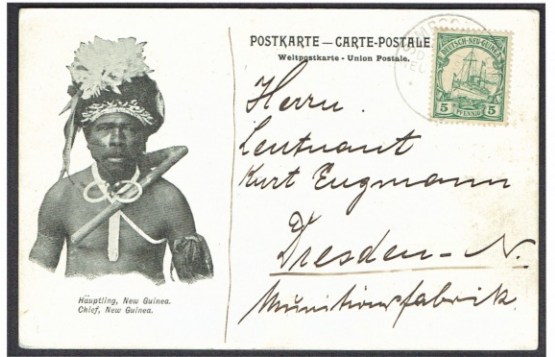 POSTKARTE — CARTE-POSTALE.
Weltpostkarte - Union Postale.
DEUTSCH-NEU-GUINEA
5 PFENNIG 5
Herrn.
Leutnant
Kurt Engmann
Dresden-N.
Munitionsfabrik.
Häuptling, New Guinea.
Chief, New Guinea.